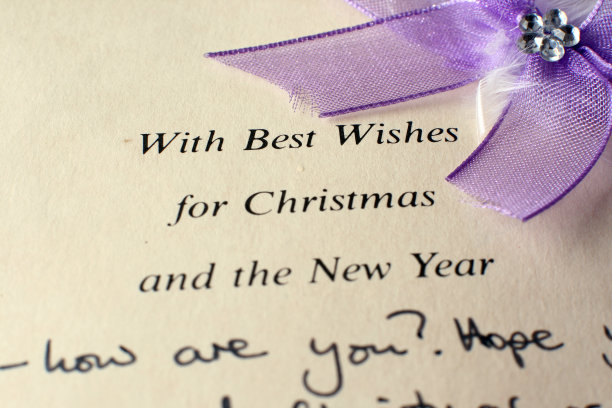 With Best Wishes
for Christmas
and the New Year
- how are you?. Hope